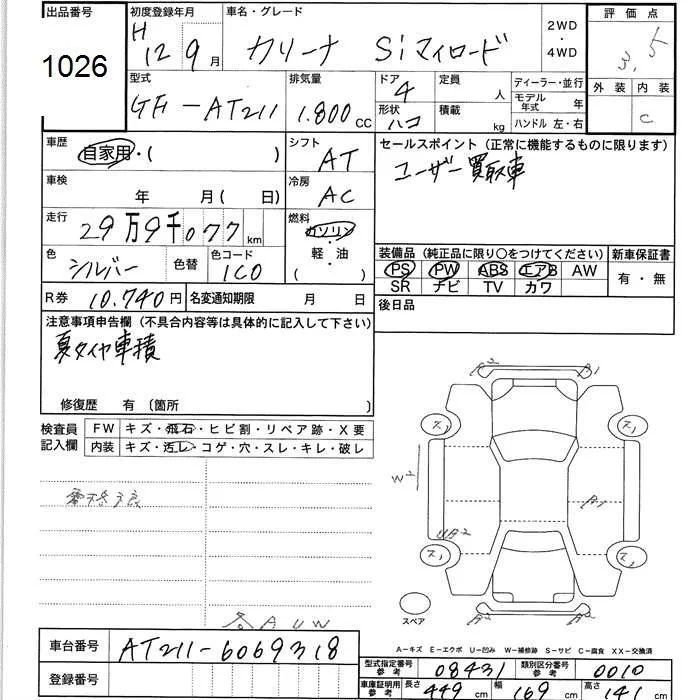 出品番号
1026
初度登録年月
H 12 9月
車名・グレード
カリーナ Siマイロード
2WD・4WD
評価点
3.5
外装 内装
C
型式
GF-AT211
排気量
1.800 CC
ドア
4
形状
ハコ
定員 人
積載 kg
ディーラー・並行
モデル年式 年
ハンドル 左・右
車歴
自家用・( )
シフト
AT
セールスポイント (正常に機能するものに限ります)
ユーザー買取車
車検
年 月( 日)
冷房
AC
走行
29万9千077km
燃料
ガソリン・軽油・( )
色
シルバー
色替
色コード
1C0
装備品 (純正品に限り○をつけてください)
PS PW ABS エアB AW
SR ナビ TV カワ
新車保証書
有・無
R券 10.740円
名変通知期限 月 日
後日品
注意事項申告欄 (不具合内容等は具体的に記入して下さい)
夏タイヤ車積
修復歴 有 〔箇所 〕
検査員記入欄
FW キズ・飛石・ヒビ割・リペア跡・X要
内装 キズ・汚レ・コゲ・穴・スレ・キレ・破レ
A2
A1
W2
A1
UA2
A2
A2
スペア
A U W
A-キズ E-エクボ U-凹み W-補修跡 S-サビ C-腐食 XX-交換済
車台番号
AT211-6069318
登録番号
型式指定番号 参考
08431
類別区分番号 参考
0010
車庫証明用 参考
長さ 449cm
幅 169cm
高さ 141cm